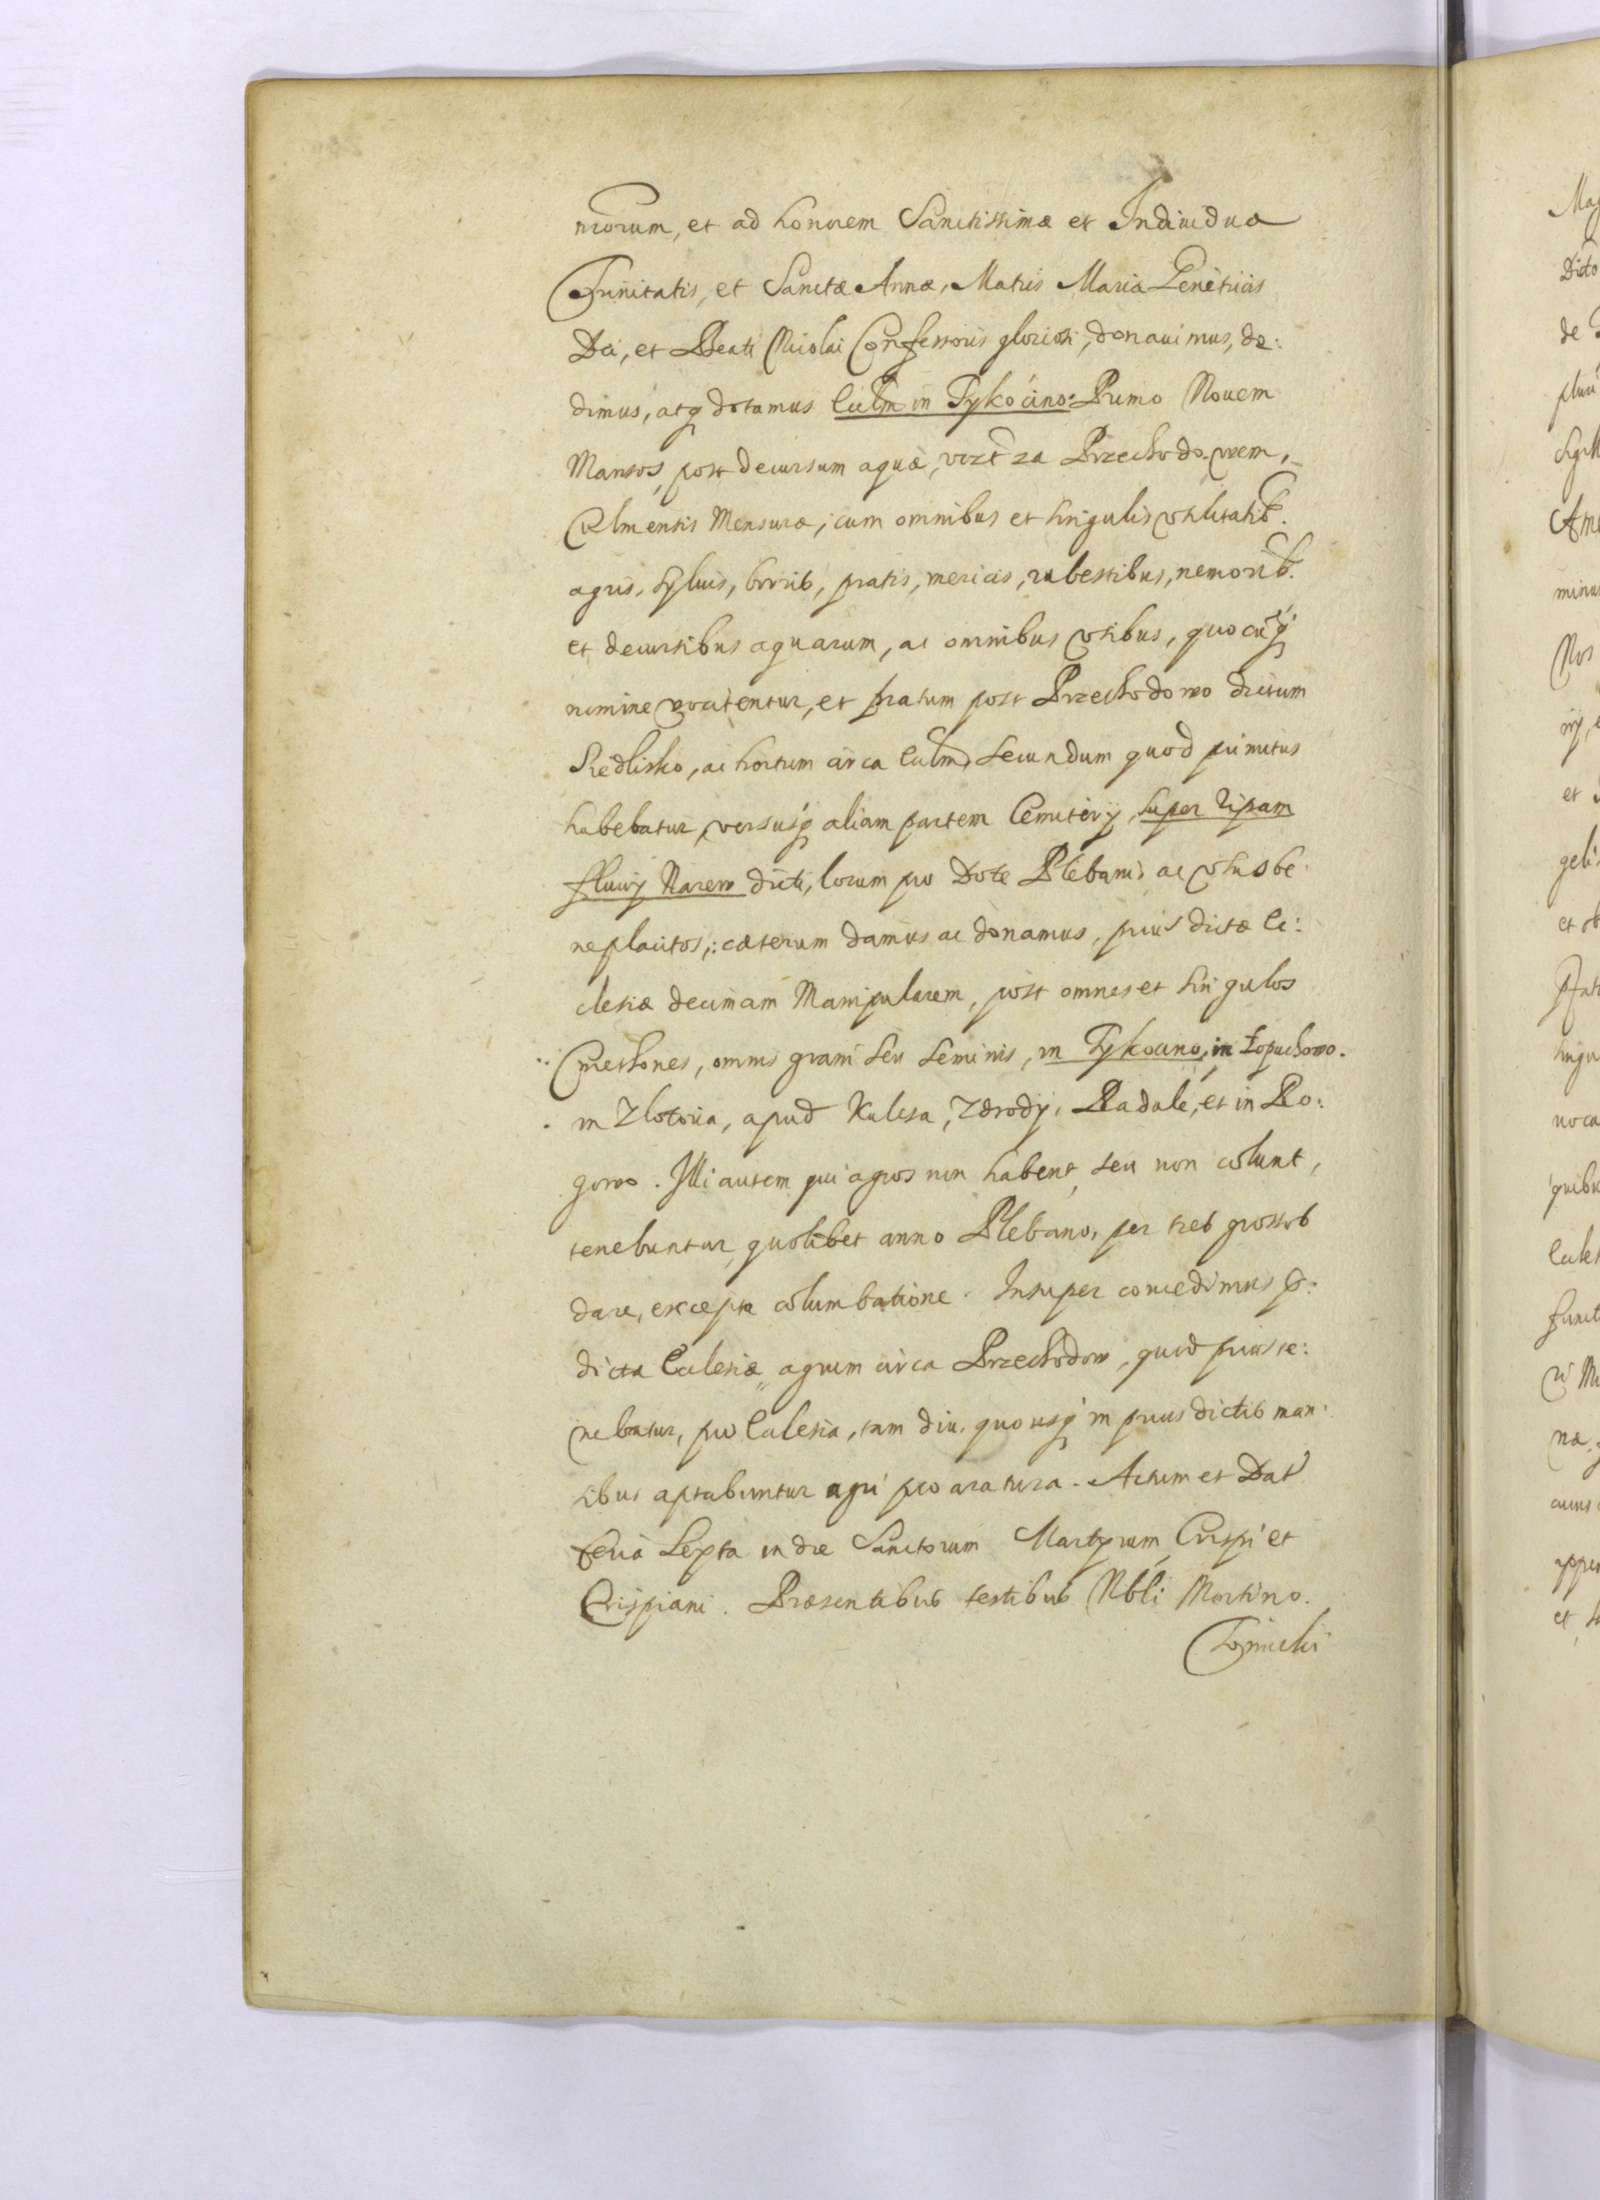 nrorum, et ad honorem Sanctissimæ et Indiuiduæ
Trinitatis, et Sanctæ Annæ, Matris Maria Genetricis
Dei, et Beati Nicolai Confessoris gloriosi, donauimus, de:
dimus, atq dotamus Ecclm in Tykocino: Primo Nouem
Mansos, post decursum aquæ, vozt za Przechodowem,
Culmensis Mensuræ, cum omnibus et singulis vtilitatib.
agris, syluis, borris, pratis, mericis, rubestibus, nemorib.
et decursibus aquarum, ac omnibus vsibus, quocuq
nomine vocitentur, et pratum post Przechodowo dictum
Siedlisko, ac hortum circa Ecclm, secundum quod primitus
habebatur, versusq aliam partem Cemiterij, super ripam
fluuij Narew dicti, locum pro Dote Plebani, ac vsus be:
neplacitos,: cæterum damus ac donamus, prius dictæ Ec:
clesiæ decimam Manipularem, post omnes et singulos
Cmethones, omnis grani seu seminis, in Tykocino, in Łopuchowo.
in Zlotoria, apud Kulesa, Zdrody, Radule, et in Ro:
gowo. Illi autem qui agros non habent, seu non colunt,
tenebuntur, quolibet anno Plebano, per tres grossos
dare, excepta columbatione. Insuper concedimus p:
dicta Ecclesiæ agrum circa Przechodow, quod prius te:
nebatur, pro Ecclesia, tam diu, quousq in prius dictis man:
sibus aptabuntur agri pro aratura. Actum et Dat
feria Sexta in die Sanctorum Martyrum, Crispi et
Crispiani. Præsentibus testibus Nbli Martino.